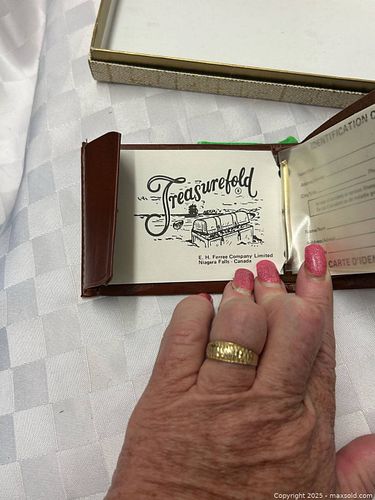 Treasurefold ®
E. H. Ferree Company Limited
Niagara Falls - Canada
IDENTIFICATION
CARTE D'IDEN
Copyright © 2025 - maxsold.com